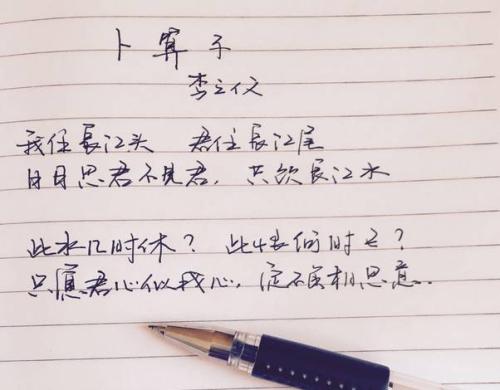 卜算子
李之仪
我住長江头 君住長江尾
日日思君不見君，共饮長江水
此水几时休？此恨何时已？
只愿君心似我心，定不负相思意.